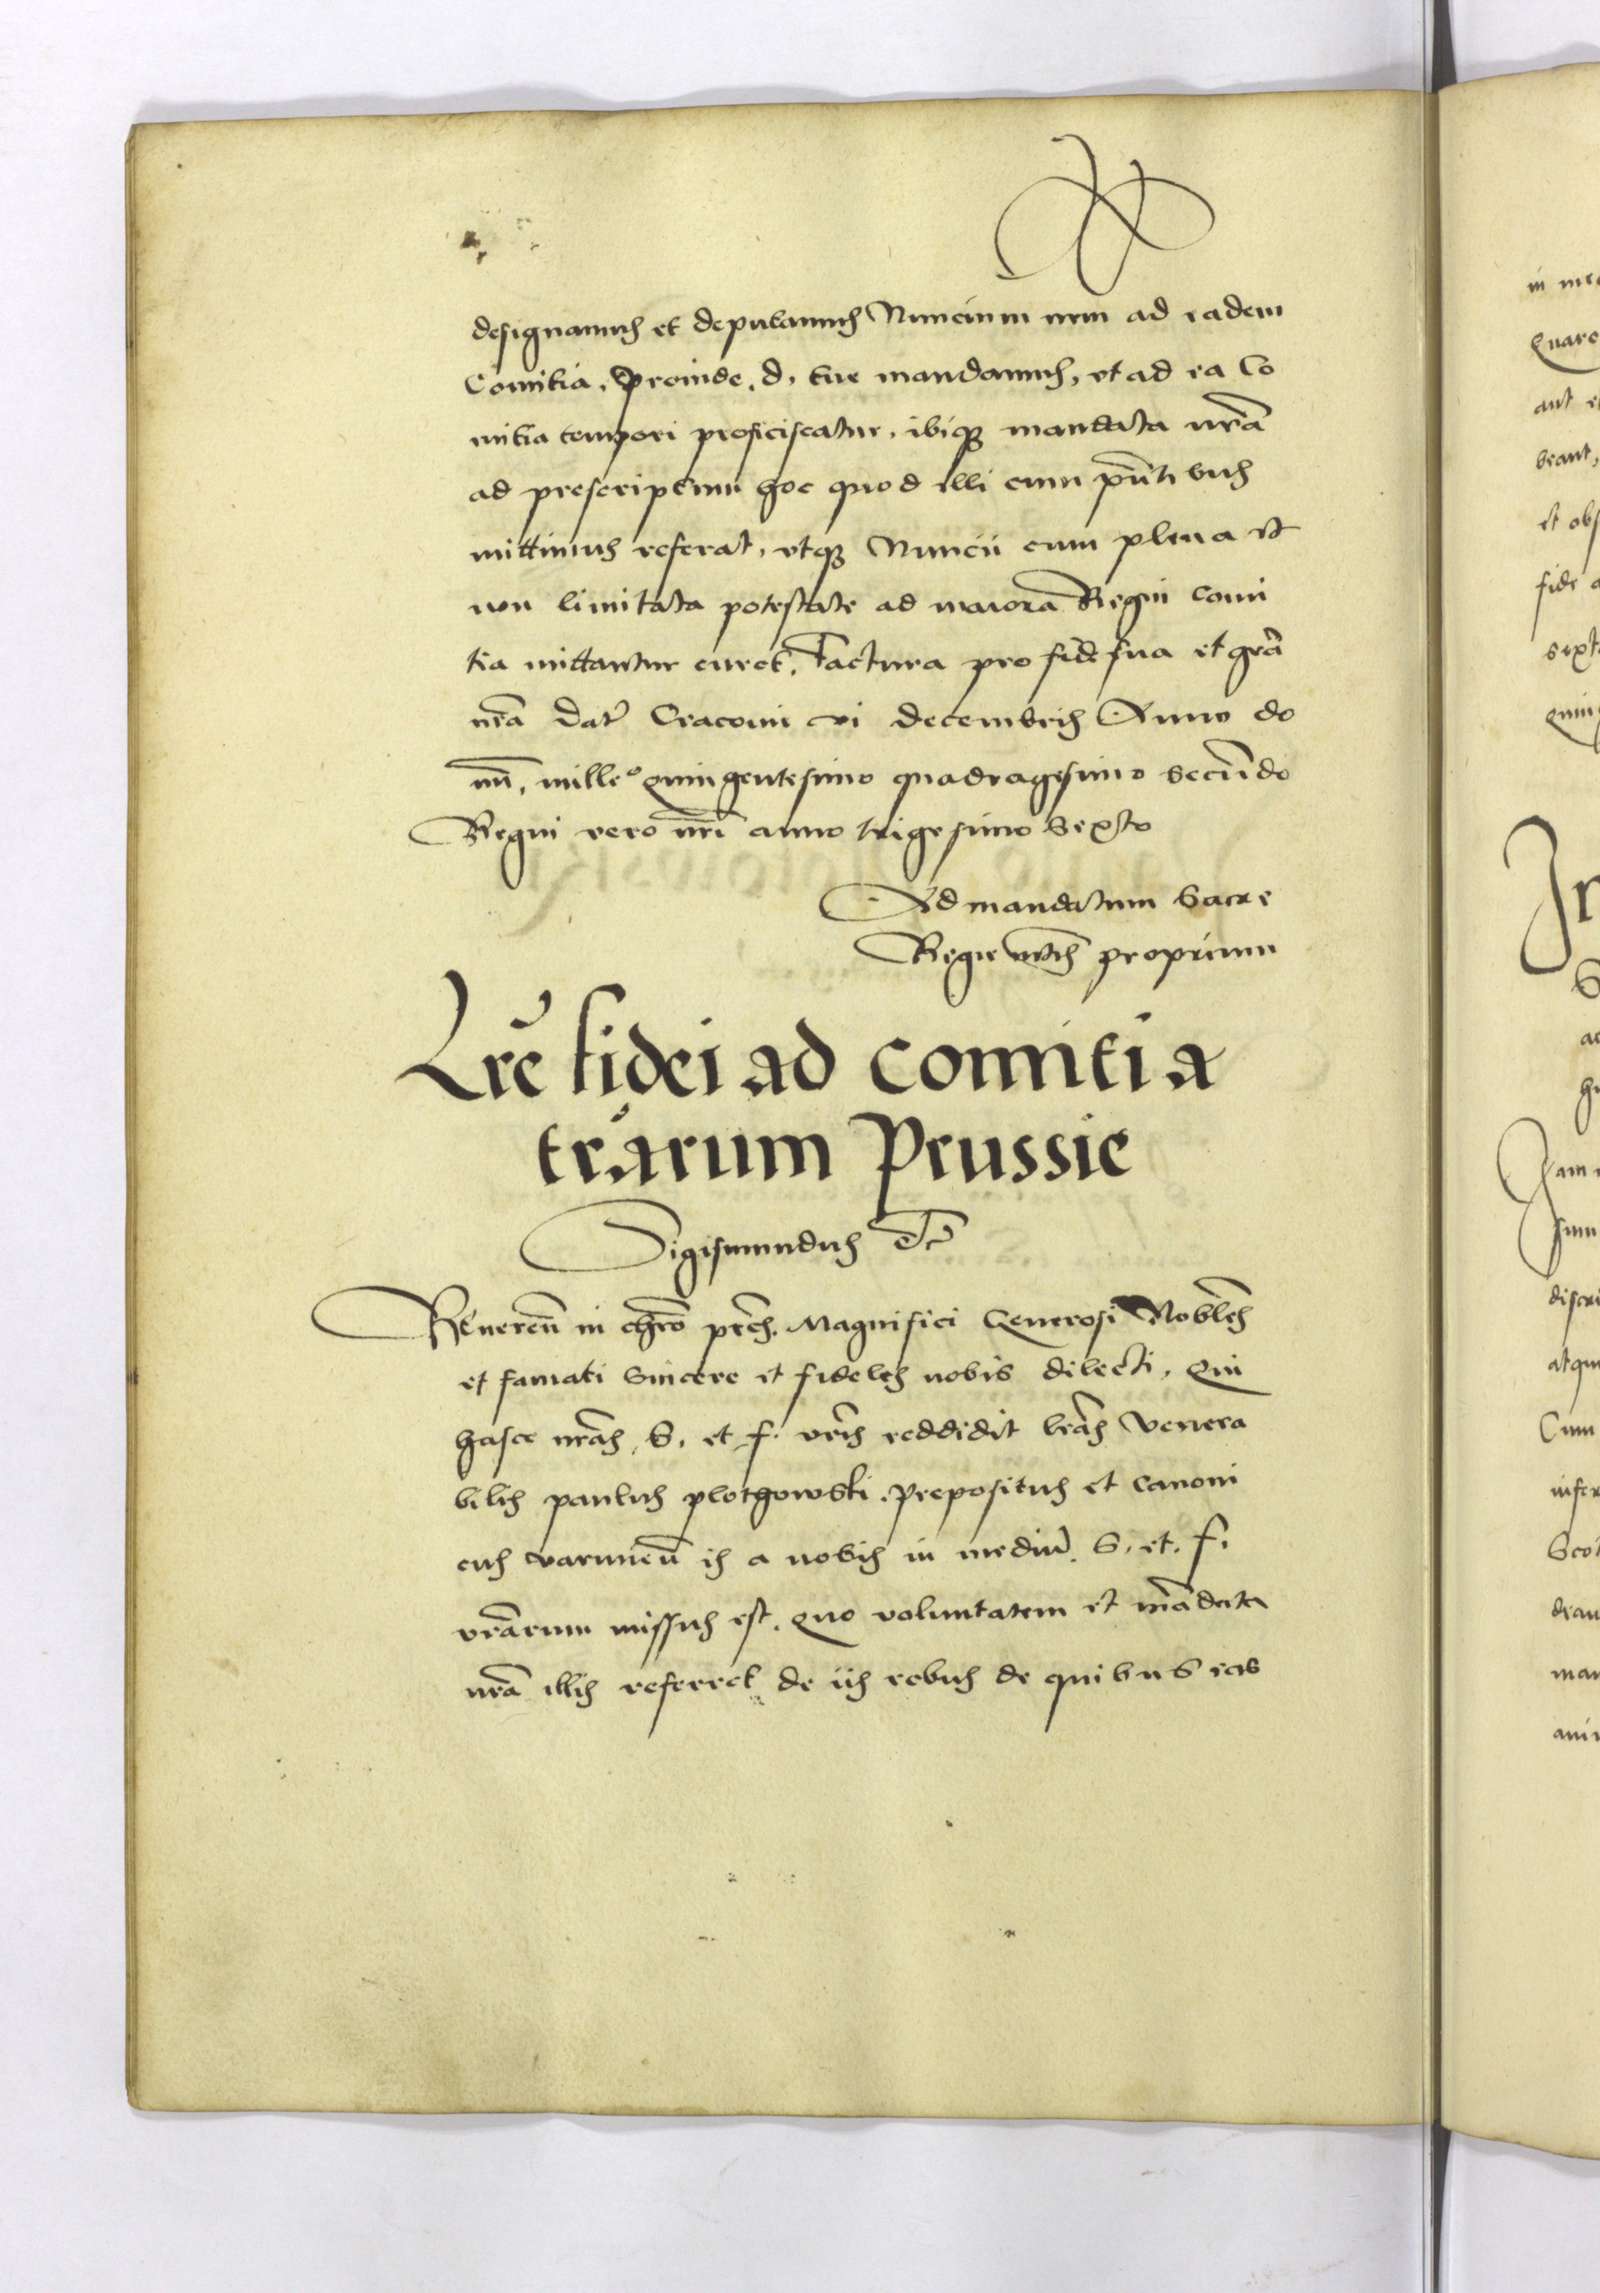 designamus et deputamus Nuncium nrm ad eadem
Comitia. Proinde. d. tue mandamus, vt ad ea Co
mitia tempori proficiscatur, ibiqȝ mandata nrã
ad prescriptum hoc quod illi cum pñtibus
mittimus referat, vtqȝ Nuncii cum plena et
non limitata potestate ad maiora Regni comi
tia mittantur curet. Factura pro fide sua et grã
nrã Dat̃ Cracovi vi decembris Anno do
mĩ, mille° quingentesimo quadragesimo secũdo
Regni vero nrĩ anno trigesimo sexto
Ad mandatum Sacre
Regie mtis proprium
Lrẽ fidei ad comitia
trãrum Prussie
Sigismundus etc̃
Reuerẽn in chrõ prẽs. Magnifici Generosi Nobles
et famati sincere et fideles nobis dilecti. Qui
hasce nrãs. S. et f. vrĩs reddidit lrãs Venera
bilis paulus plothowski. Prepositus et canoni
cus varmieñ is a nobis in mediũ. S. et. f.
vrãrum missus est. quo voluntatem et mãdata
nrã illis referret de iis rebus de quibus eas
in
Quare
ant
beant,
et obs
fide
sexto
quin
In
Jam
sum
discri
atqu
Cum
infer
man